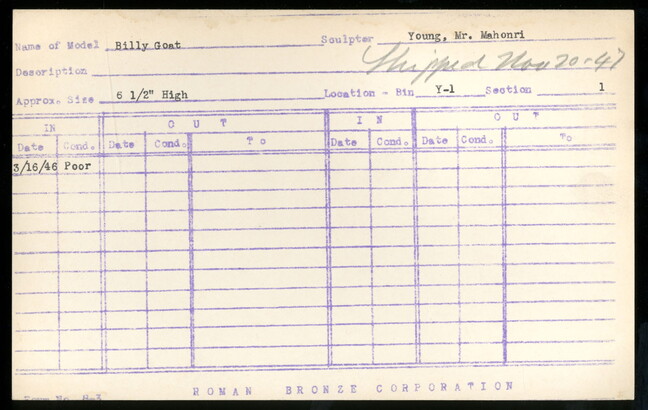 Name of Model Billy Goat Sculptor Young, Mr. Mahonri
Description Shipped Nov 20-47
Approx. Size 6 1/2" High Location - Bin Y-1 Section 1
IN OUT IN OUT
Date Cond. Date Cond. To Date Cond. Date Cond. To
3/16/46 Poor
ROMAN BRONZE CORPORATION
Form No. H-3